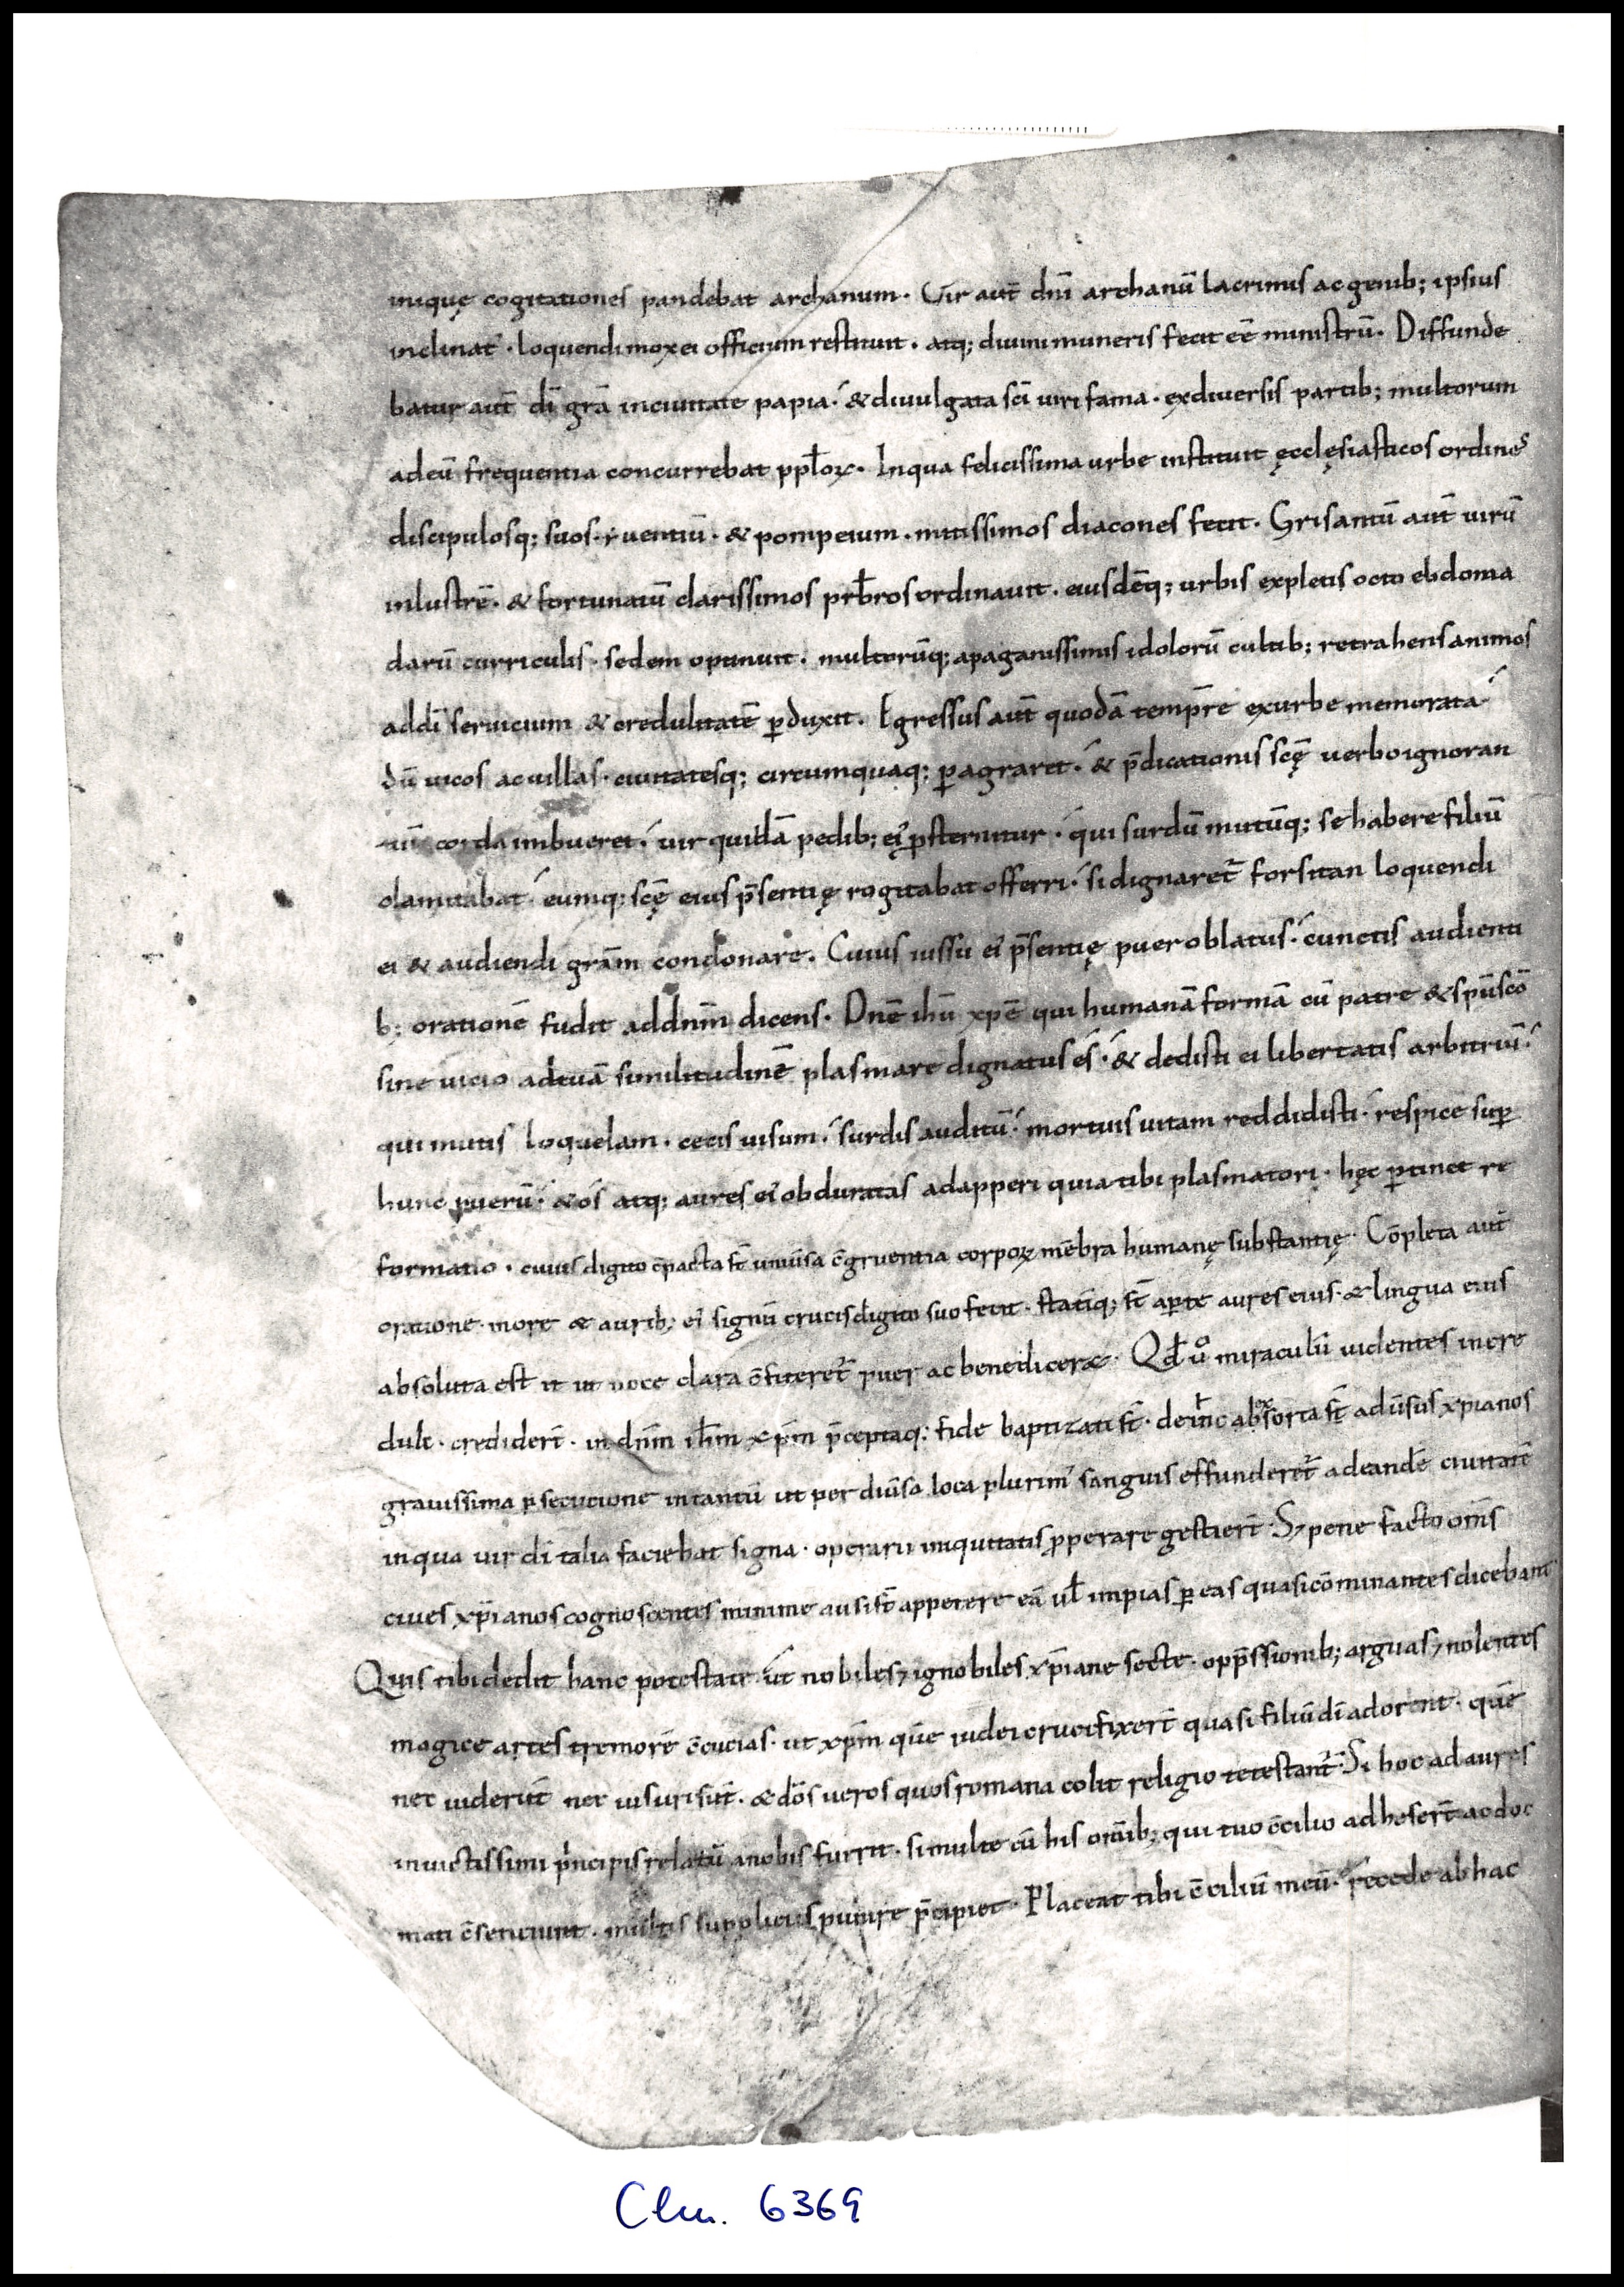 iniquę cogitationes pandebat archanum. Vir aut̄ dn̄i archanū lacrimis ac genib; ipsius
inclinat᾿. loquendi mox ei officium restituit. atq; diuini muneris fecit eē ministrū. Diffunde
batur aut̄ dī gr̄a in ciuitate papia. & diuulgata sc̄i uiri fama. ex diuersis partib; multorum
ad eū frequentia concurrebat ppl̄oꝝ. In qua felicissima urbe instituit ęcclęsiasticos ordines
discipulosq; suos. iuentiū. & pompeium. mitissimos diacones fecit. Grisantū aut̄ uirū
inlustrē. & fortunatū clarissimos prb̄ros ordinauit. eiusdēq; urbis expletis octo ebdoma
darū curriculis. sedem optinuit. multorūq; a paganissimis idolorū cultib; retrahens animos
ad dī seruicium & credulitatē ꝑduxit. Egressus aut̄ quodā temp̄re ex urbe memorata
dū uicos ac uillas. ciuitatesq; circumquaq; ꝑagraret. & p̄dicationis scę̄ uerbo ignoran
tiū corda imbueret. uir quidā pedib; ei᾿ ꝓsternitur. qui surdū mutūq; se habere filiū
clamitabat. eumq; scę̄ eius p̄sentię rogitabat offerri. si dignaret᾿ forsitan loquendi
ei & audiendi gr̄am condonare. Cuius iussu ei᾿ p̄sentię puer oblatus. cunctis audienti
b; orationē fudit ad dn̄m dicens. Dn̄e ih̄u xp̄e qui humanā formā cū patre & sp̄u sc̄o
sine uicio ad tuā similitudinē plasmare dignatus es. & dedisti ei libertatis arbitriū.
qui mutis loquelam. cecis uisum. surdis auditū. mortuis uitam reddidisti. respice suꝑ
hunc puerū. & os atq; aures ei᾿ obduratas adapperi quia tibi plasmatori. hęc ꝑtinet re
formatio. cuius digito c̄pacta st̄ uniūsa c̄gruentia corpoꝝ mēbra humanę substantię. Cōpleta aut̄
oratione. more & aurib; ei᾿ signū crucis digito suo fecit. statiq; st̄ aꝑte aures eius. & lingua eius
absoluta est it ut uoce clara c̄fiteret᾿ puer ac benediceret. Qd̄ uº miraculū uidentes incre
dule. crediderī. in dn̄m ih̄m xp̄m p̄ceptaq; fide baptizati st̄. deinc abexsorta st̄ aduīsus xp̄ianos
grauissima ꝑsecutione in tantū ut per diuīsa loca plurim᾿ sanguis effunderet᾿ ad eandē ciuitatē
in qua uir dī talia faciebat signa. operarii iniquitatis ꝓperare gestierī. S; pene facto om̄s
ciues xp̄ianos cognoscentes minime ausi st̄ appetere eā ul̄ impias ꝑ eas quasi cōminantes dicebant
Quis tibi dedit hanc potestatē ut nobiles ⁊ ignobiles xp̄iane secte. opp̄ssionib; arguas ⁊ nolentes
magice artes tremore c̄cucias. ut xp̄m quē iudei crucifixerī quasi filiū dī adorent. quē
nec uiderūt nec uisuri sūt. & dōs ueros quos romana colit religio tetestant᾿. Si hoc ad aures
inuictissimi p̄ncipis relatū a nobis fuerit. simul te cū his om̄ib; qui tuo c̄cilio adheserī ac doc
mati c̄senciunt. multis suppliciis punire p̄cipiet. Placeat tibi c̄ciliū meū. recede ab hac
Clm. 6369